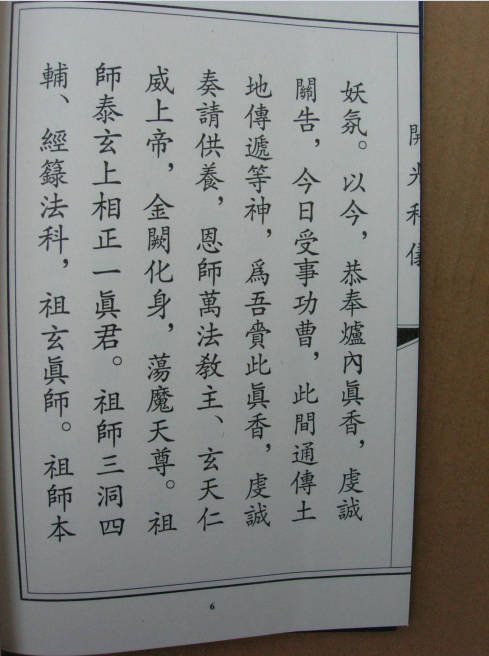 開光科儀
妖氛。以今，恭奉爐內眞香，虔誠
關告，今日受事功曹，此間通傳土
地傳遞等神，爲吾賫此眞香，虔誠
奏請供養，恩師萬法敎主、玄天仁
威上帝，金闕化身，蕩魔天尊。祖
師泰玄上相正一眞君。祖師三洞四
輔、經籙法科，祖玄眞師。祖師本
6